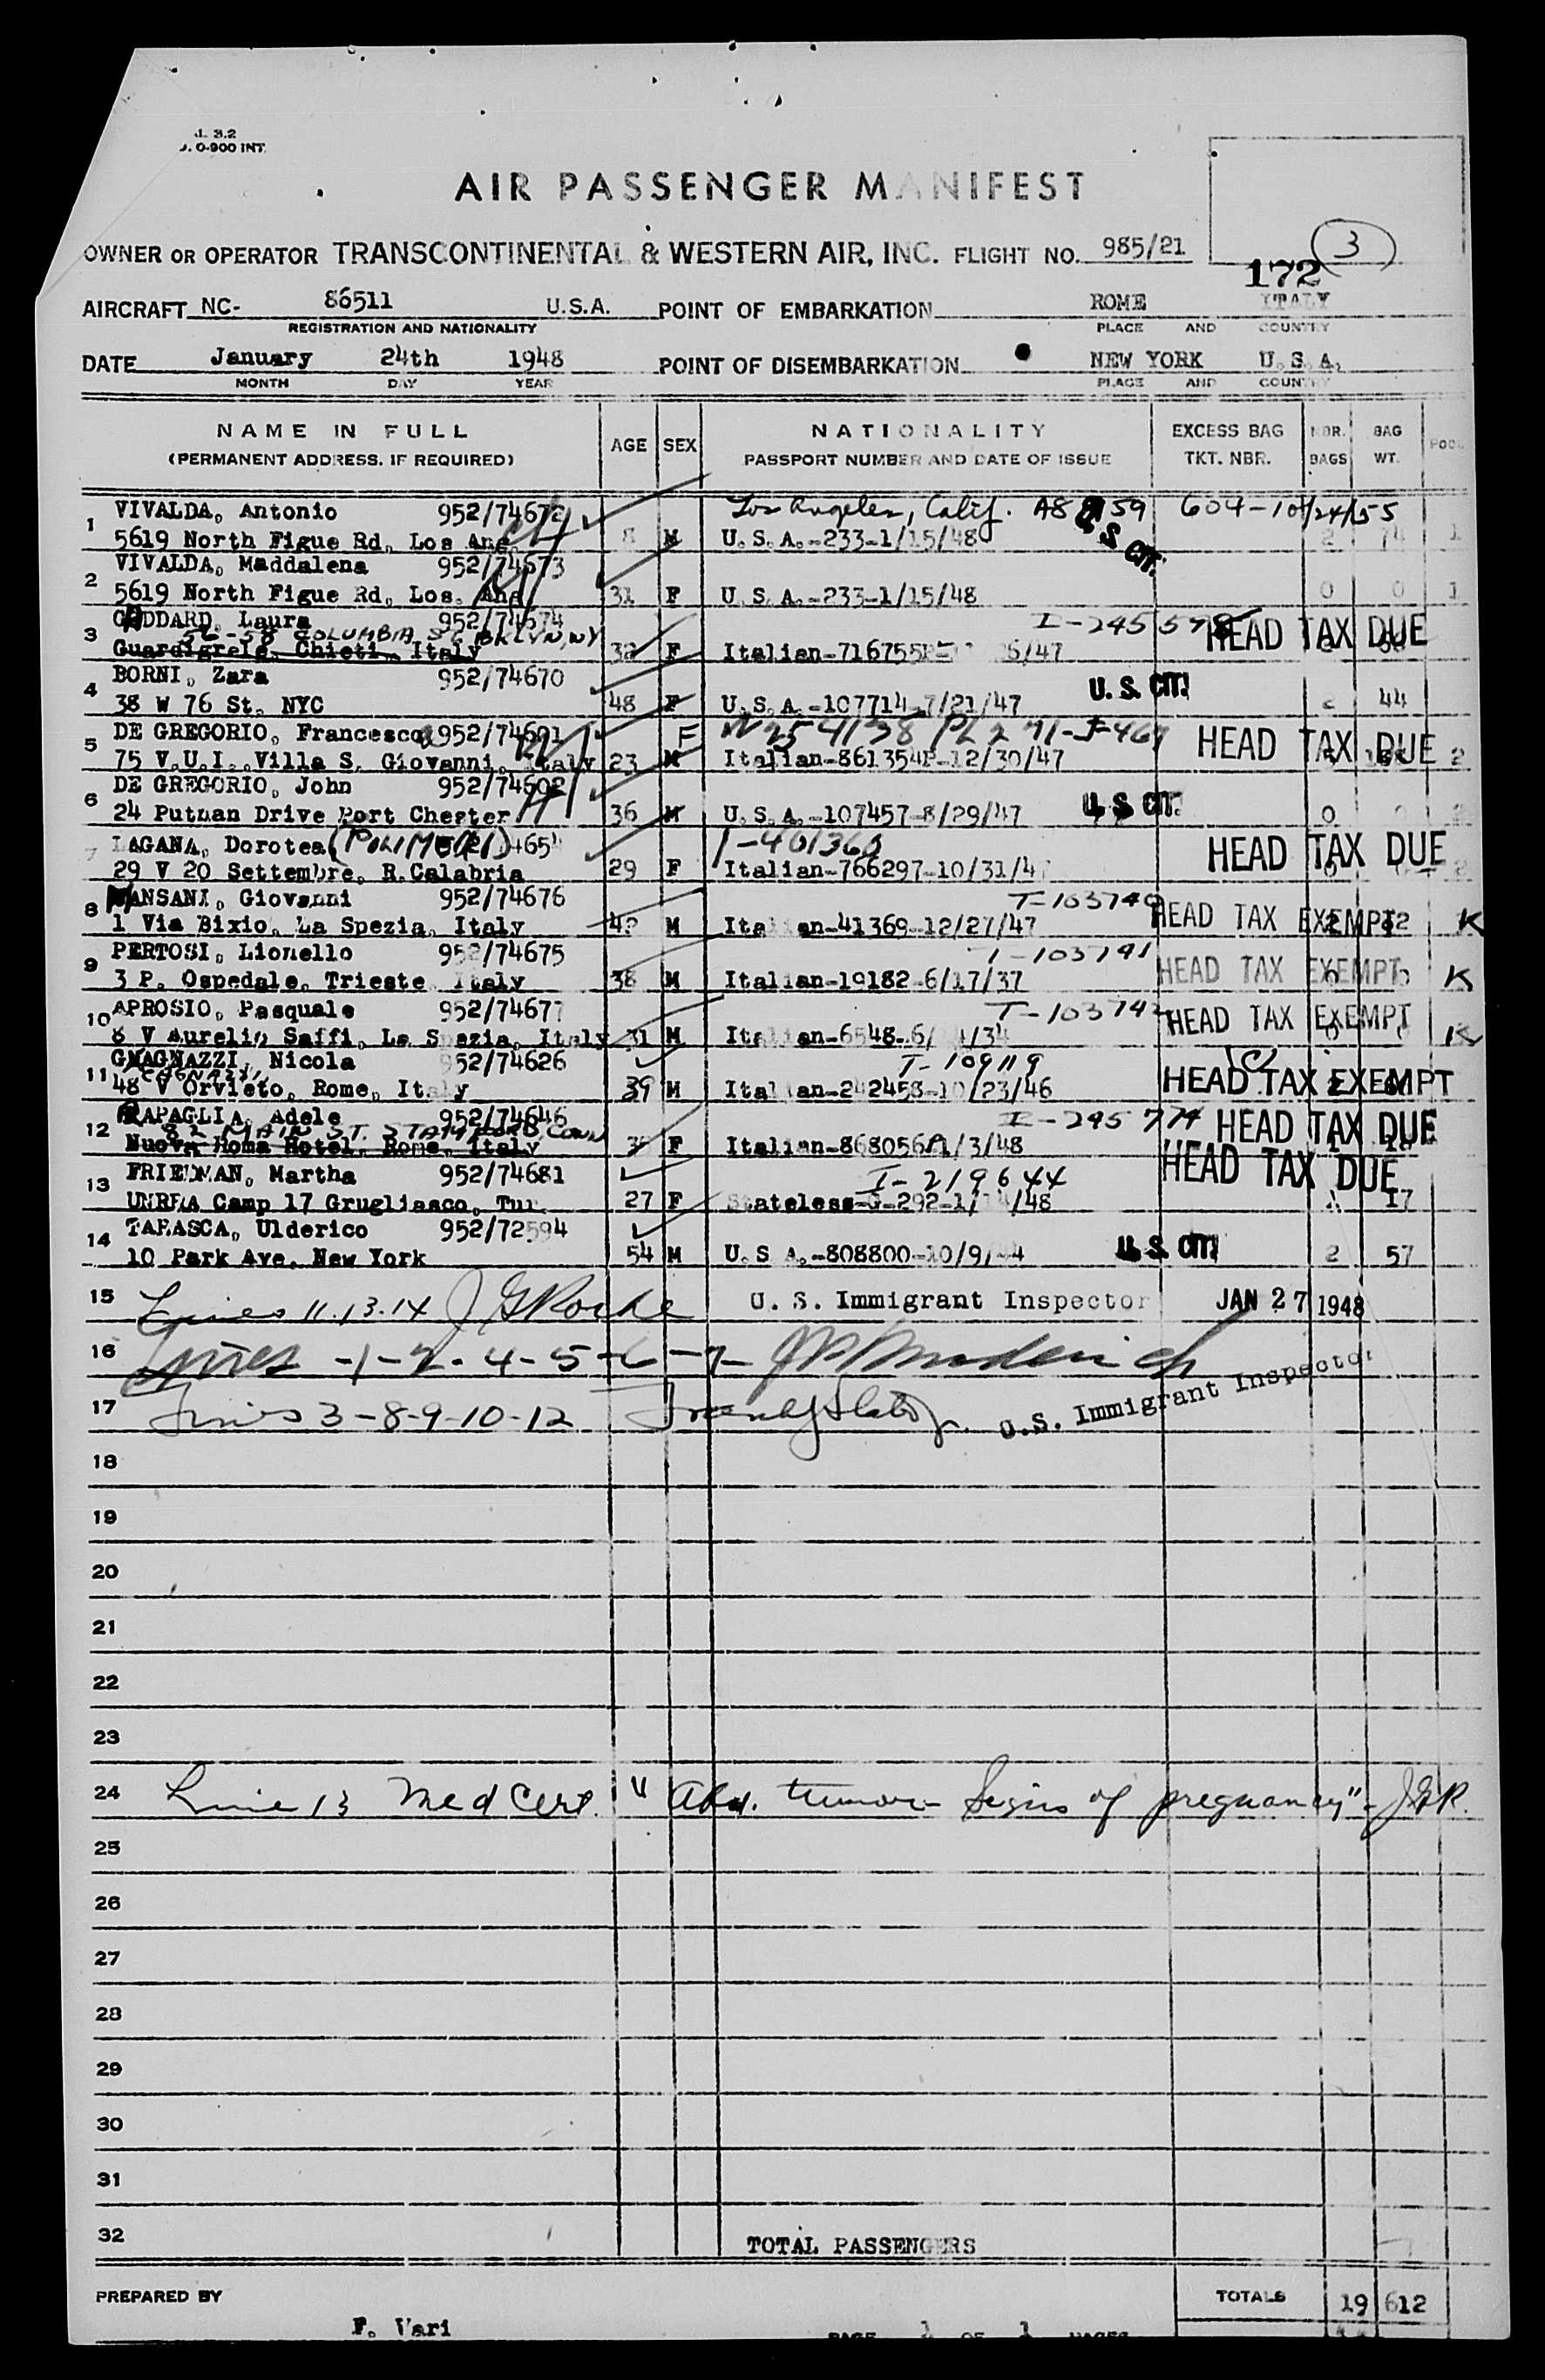 O-900 INT.
AIR PASSENGER MANIFEST
OWNER OR OPERATOR TRANSCONTINENTAL & WESTERN AIR, INC. FLIGHT NO. 985/21
3
172
AIRCRAFT NC- 86511 U.S.A. POINT OF EMBARKATION ROME ITALY
REGISTRATION AND NATIONALITY PLACE AND COUNTRY
DATE January 24th 1948 POINT OF DISEMBARKATION NEW YORK U.S.A.
MONTH DAY YEAR PLACE AND COUNTRY
NAME IN FULL AGE SEX NATIONALITY EXCESS BAG NBR. BAG
(PERMANENT ADDRESS, IF REQUIRED) PASSPORT NUMBER AND DATE OF ISSUE TKT. NBR. BAGS WT.
VIVALDA, Antonio 952/74672 Los Angeles, Calif.
1 5619 North Figue Rd, Los Ang. 8 M U.S.A.-233-1/15/48 U.S. CIT. 2 74 1
VIVALDA, Maddalena 952/74673
2 5619 North Figue Rd, Los. Ang 31 F U.S.A.-233-1/15/48 0 0 1
Laura 952/74674 HEAD TAX DUE
56-58 COLUMBIA ST BKLYN, NY
3 Guardigrele, Chieti, Italy F Italian-716755
BORNI, Zara 952/74670 U.S. CIT.
4 38 W 76 St. NYC 48 F U.S.A.-107714-7/21/47 2 44
DE GREGORIO, Francesca 952/74601 F HEAD TAX DUE
5 75 V.U.I. Villa S. Giovanni, Italy 23 M Italian-861354P-12/30/47 2
DE GREGORIO, John 952/74602 U.S. CIT.
6 24 Putnan Drive Port Chester 36 M U.S.A.-107457-8/29/47 0
LAGANA, Dorotea HEAD TAX DUE
7 29 V 20 Settembre, R.Calabria 29 F Italian-766297-10/31/4
MANSANI, Giovanni 952/74676 T-103740 HEAD TAX EXEMPT
8 1 Via Bixio, La Spezia, Italy M Italian-41369-12/27/47 K
PERTOSI, Lionello 952/74675 T-103741 HEAD TAX EXEMPT
9 3 P. Ospedale, Trieste Italy 38 M Italian-19182-6/17/37 K
APROSIO, Pasquale 952/74677 HEAD TAX EXEMPT
10 8 V Aurelio Saffi, La Spezia, Italy 31 M Italian-6548 K
Nicola 952/74626 T-109119
CAGNAZZI
11 48 V Orvieto, Rome, Italy 39 M Italian-242458-10/23/46 HEAD TAX EXEMPT
RAPAGLIA, Adele 952/74646 I-295774 HEAD TAX DUE
MAIN ST. STAMFORD CONN
12 Nuova Roma Hotel, Rome, Italy F Italian-868056 1/3/48
FRIEDMAN, Martha 952/74681 I-219644 HEAD TAX DUE
13 UNRRA Camp 17 Grugliasco, Tur. 27 F Stateless 17
TARASCA, Ulderico 952/72594
14 10 Park Ave. New York 54 M U.S.A.-808800 U.S. CIT. 2 57
15 Lines 11.13.14 J G Roche U.S. Immigrant Inspector JAN 27 1948
16 Lines -1-2-4-5-6-7-
17 Lines 3-8-9-10-12 U.S. Immigrant Inspector
18
19
20
21
22
23
24 Line 13 Med Cert. "Abd. tumor - Signs of pregnancy" - JGR.
25
26
27
28
29
30
31
32 TOTAL PASSENGERS
PREPARED BY TOTALS 19 612
F. Vari PAGE 1 OF 1 PAGES